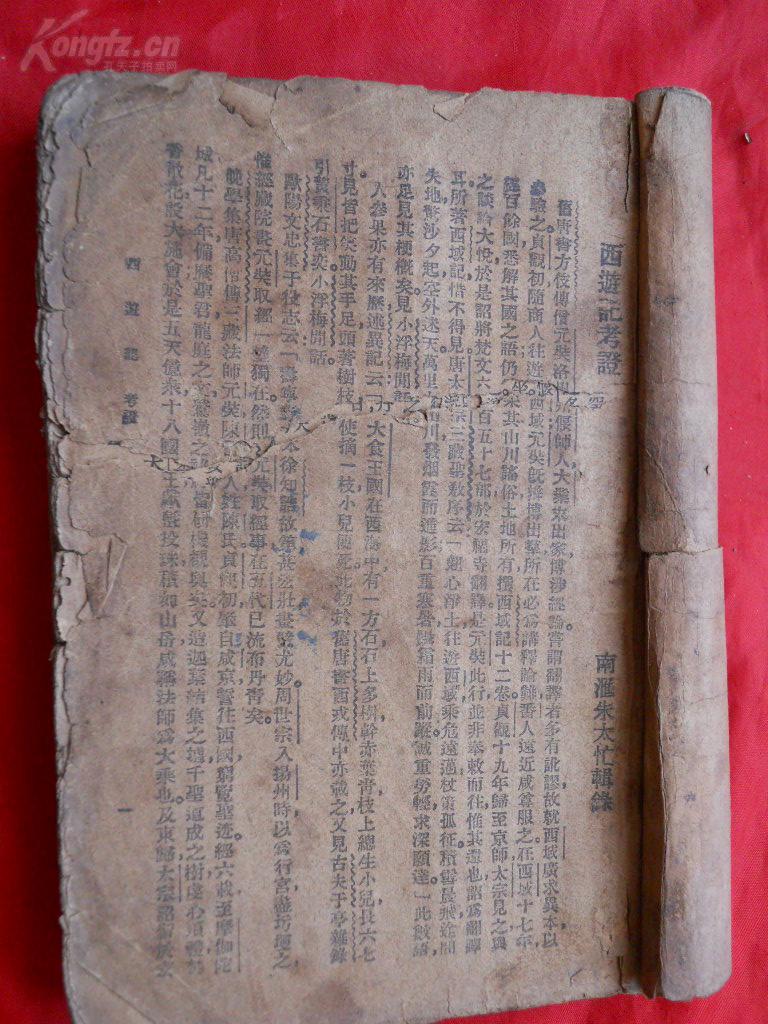 西遊記考證
南滙朱太忙輯錄
舊唐書方伎傳僧元奘洛州偃師人大業末出家博涉經論嘗謂翻譯者多有訛謬故就西域廣求異本以
參驗之貞觀初隨商人往遊西域元奘旣辯博出羣所在必爲講釋論難番人遠近咸尊服之在西域十七年
經百餘國悉解其國之語仍采其山川謠俗土地所有撰西域記十二卷貞觀十九年歸至京師太宗見之與
之談論大悅於是詔將梵文六百五十七部於宏福寺翻譯是元奘此行並非奉敕而往惟其還也詔爲翻譯
耳所著西域記惜不得見唐太宗三藏聖敎序云「翹心淨土往遊西域乘危遠邁杖策孤征積雪晨飛途間
失地驚沙夕起空外迷天萬里山川撥烟霞而進影百重寒暑躡霜雨而前蹤誠重勞輕求深願達」此數語
亦足見其梗概矣見小浮梅閒話
人參果亦有來歷述異記云「大食王國在西海中有一方石石上多樹幹赤葉青枝上總生小兒長六七
寸見皆把笑動其手足頭著樹枝使摘一枝小兒便死此物於舊唐書西戎傳中亦載之又見古夫于亭雜錄
引賢奕石書奕小浮梅閒話
歐陽文忠集于役志云「壽寧寺本徐知誥故第甚宏壯畫壁尤妙周世宗入揚州時以爲行宮盡圬墁之
惟經藏院畫元奘取經一壁獨在然則元奘取經事在五代已流布丹青矣
晚學集唐高僧傳三藏法師元奘陳留人姓陳氏貞觀初肇自咸京誓往西國窮覽聖迹經六載至摩伽陀
城凡十二年備歷聖君龍庭之文鷲嶺之說皆研機覩奧矣又遺迦葉結集之墟千聖道成之樹虔心頂禮
香散花設大施會於是五天億衆十八國王獻氎投珠積如山岳咸稱法師爲大乘也及東歸太宗詔
西遊記 考證
一
Kongfz.cn
孔夫子拍卖网